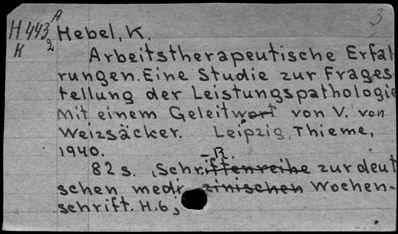 H 443 A 3
K 2 Hebel, K.
Arbeitstherapeutische Erfah
rungen. Eine Studie zur Frages
tellung der Leistungspathologie
Mit einem Geleitwort von V. von
Weizsäcker. Leipzig, Thieme,
1940. -R.
82 s. Schriftenreihe zur deut
schen medizinischen Wochen-
schrift. H. 6,